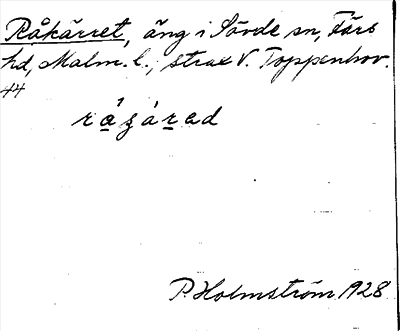 Råkärret, äng i Sövde sn, Färs
hd, Malm. l., strax V. Toppenhov.
44
P. Holmström 1928